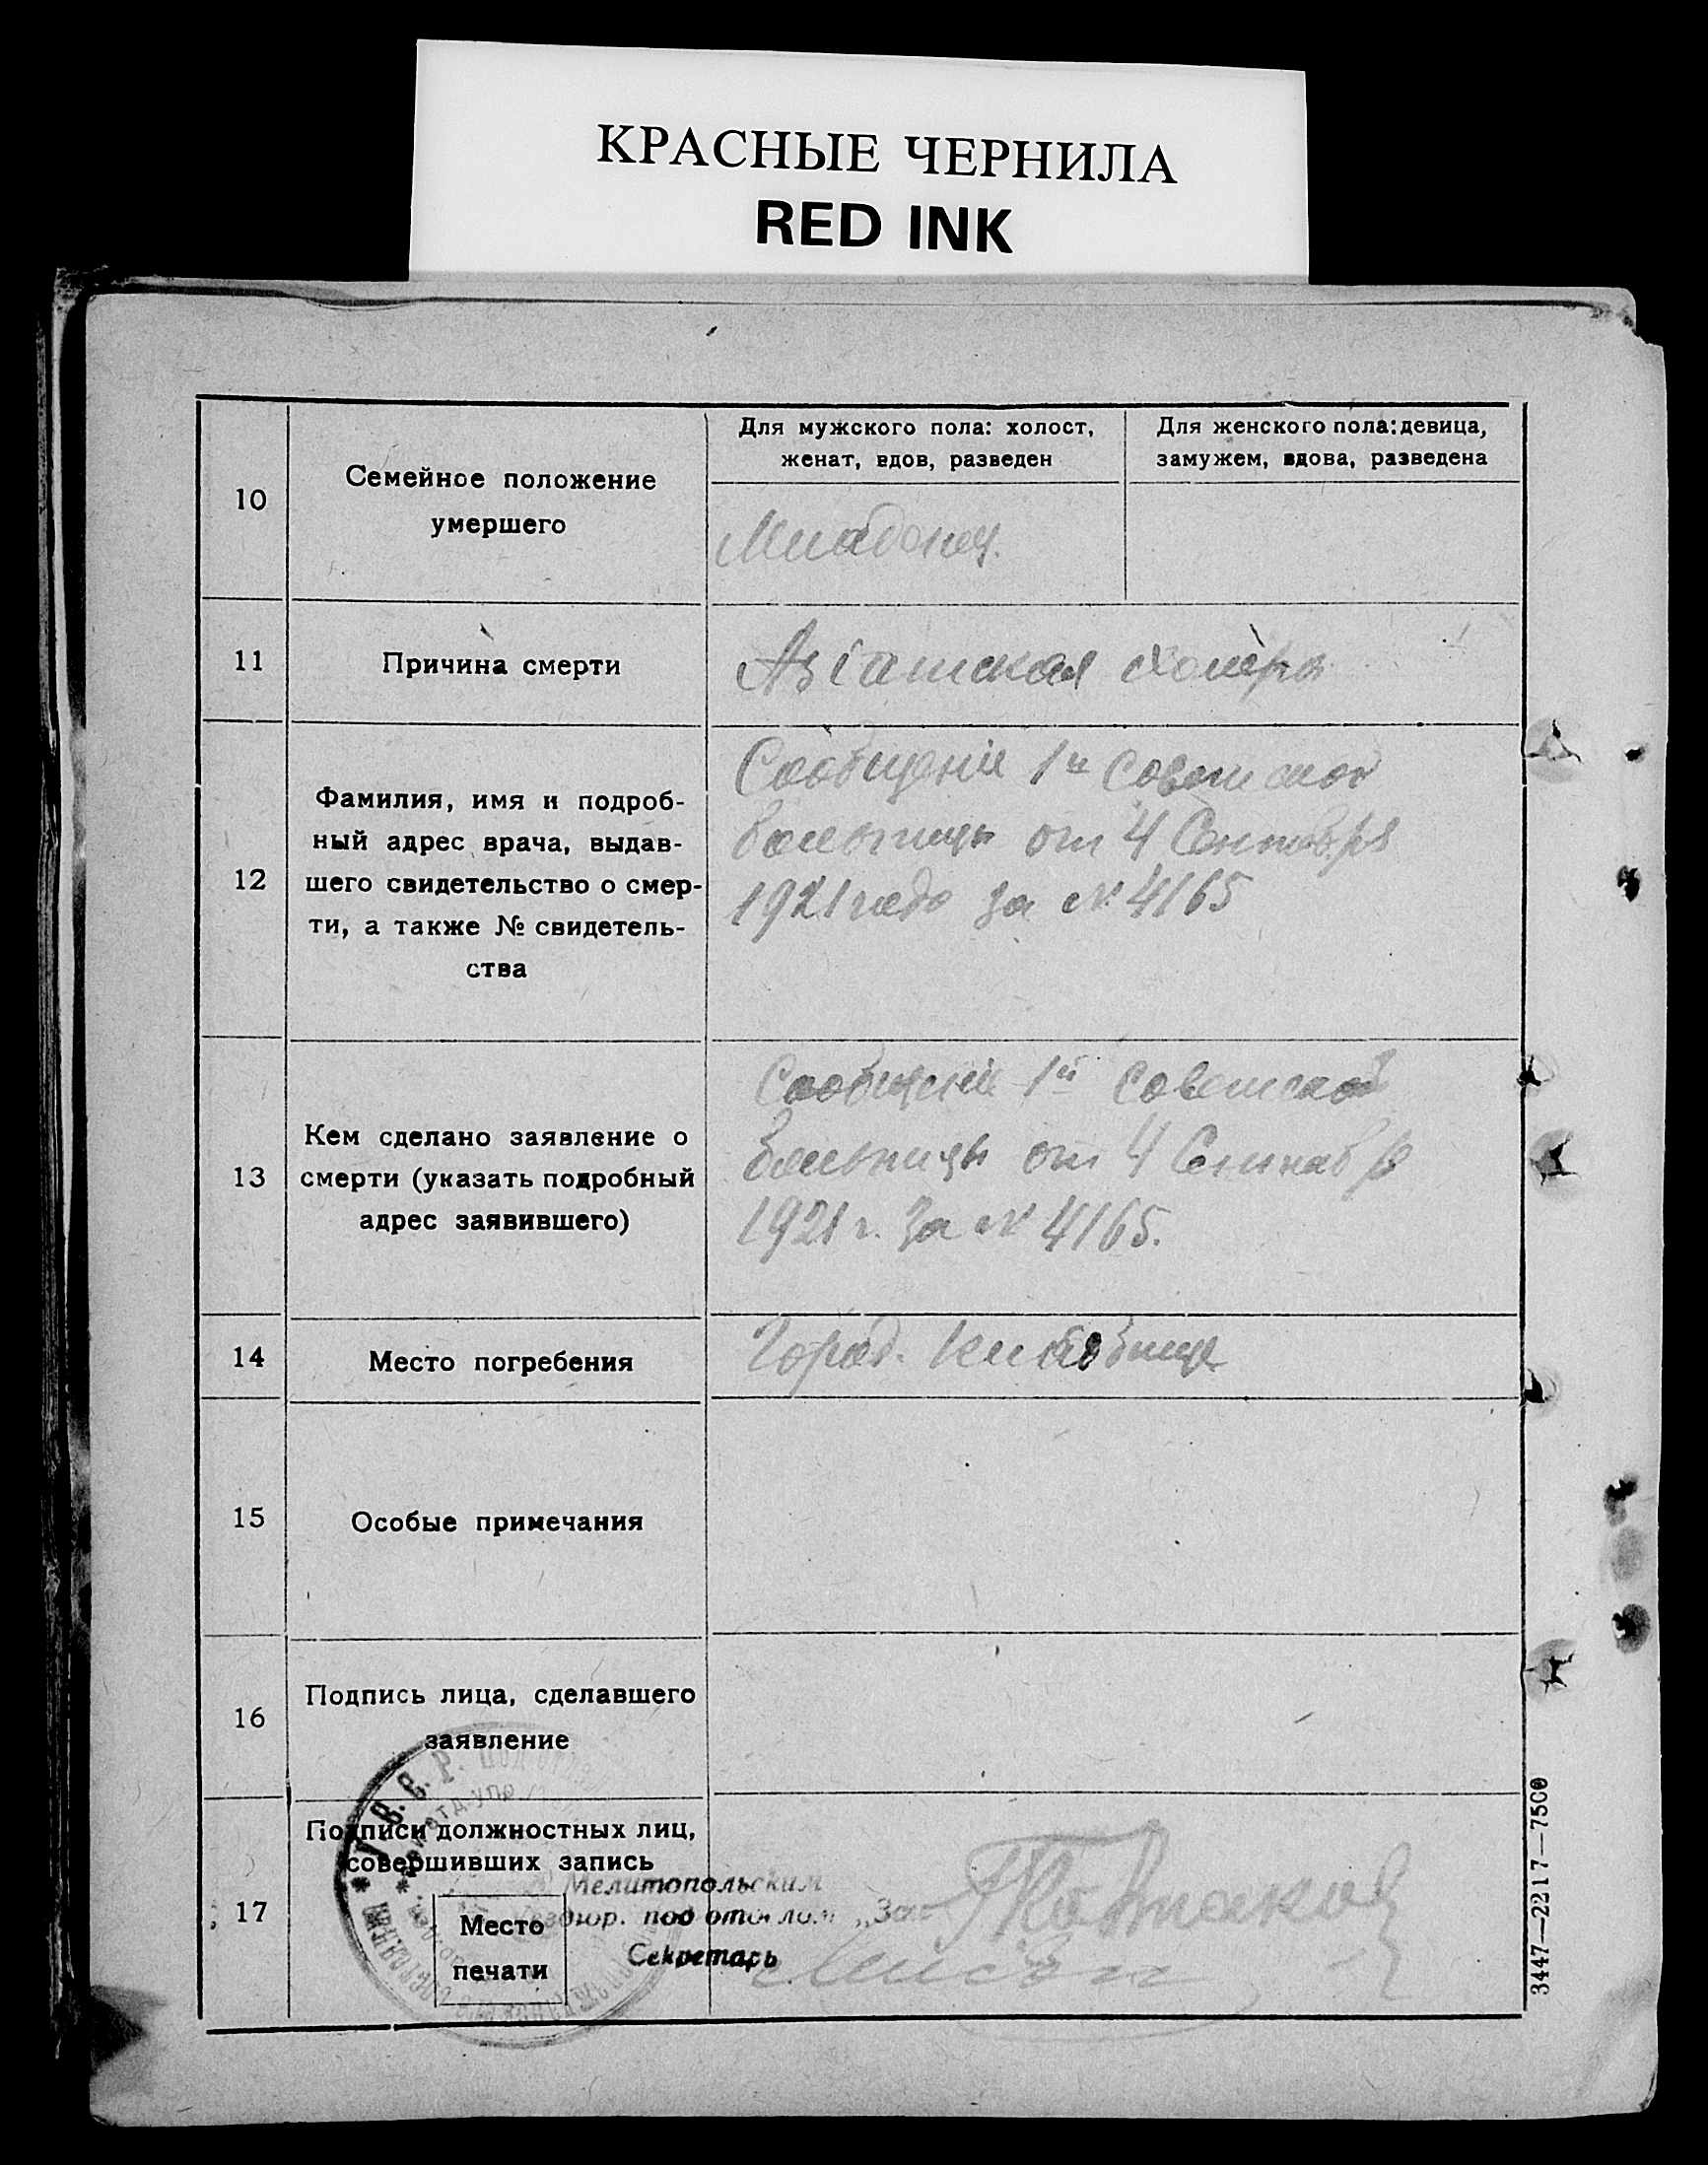 КРАСНЫЕ ЧЕРНИЛА
RED INK
10
Семейное положение
умершего
Для мужского пола: холост,
женат, вдов, разведен
Для женского пола: девица,
замужем, вдова, разведена
Младенец.
11
Причина смерти
Азіатская холера
12
Фамилия, имя и подроб-
ный адрес врача, выдав-
шего свидетельство о смер-
ти, а также № свидетель-
ства
Сообщеніе 1й Советской
больницы от 4 Сентября
1921 года за № 4165
13
Кем сделано заявление о
смерти (указать подробный
адрес заявившего)
Сообщеніе 1й Советской
больницы от 4 Сентября
1921 г. за № 4165.
14
Место погребения
Город. кладбище
15
Особые примечания
16
Подпись лица, сделавшего
заявление
17
Подписи должностных лиц,
совершивших запись
Место
печати
Мелитопольским
под отделом „Заг
Секретарь
3447—2217—7500